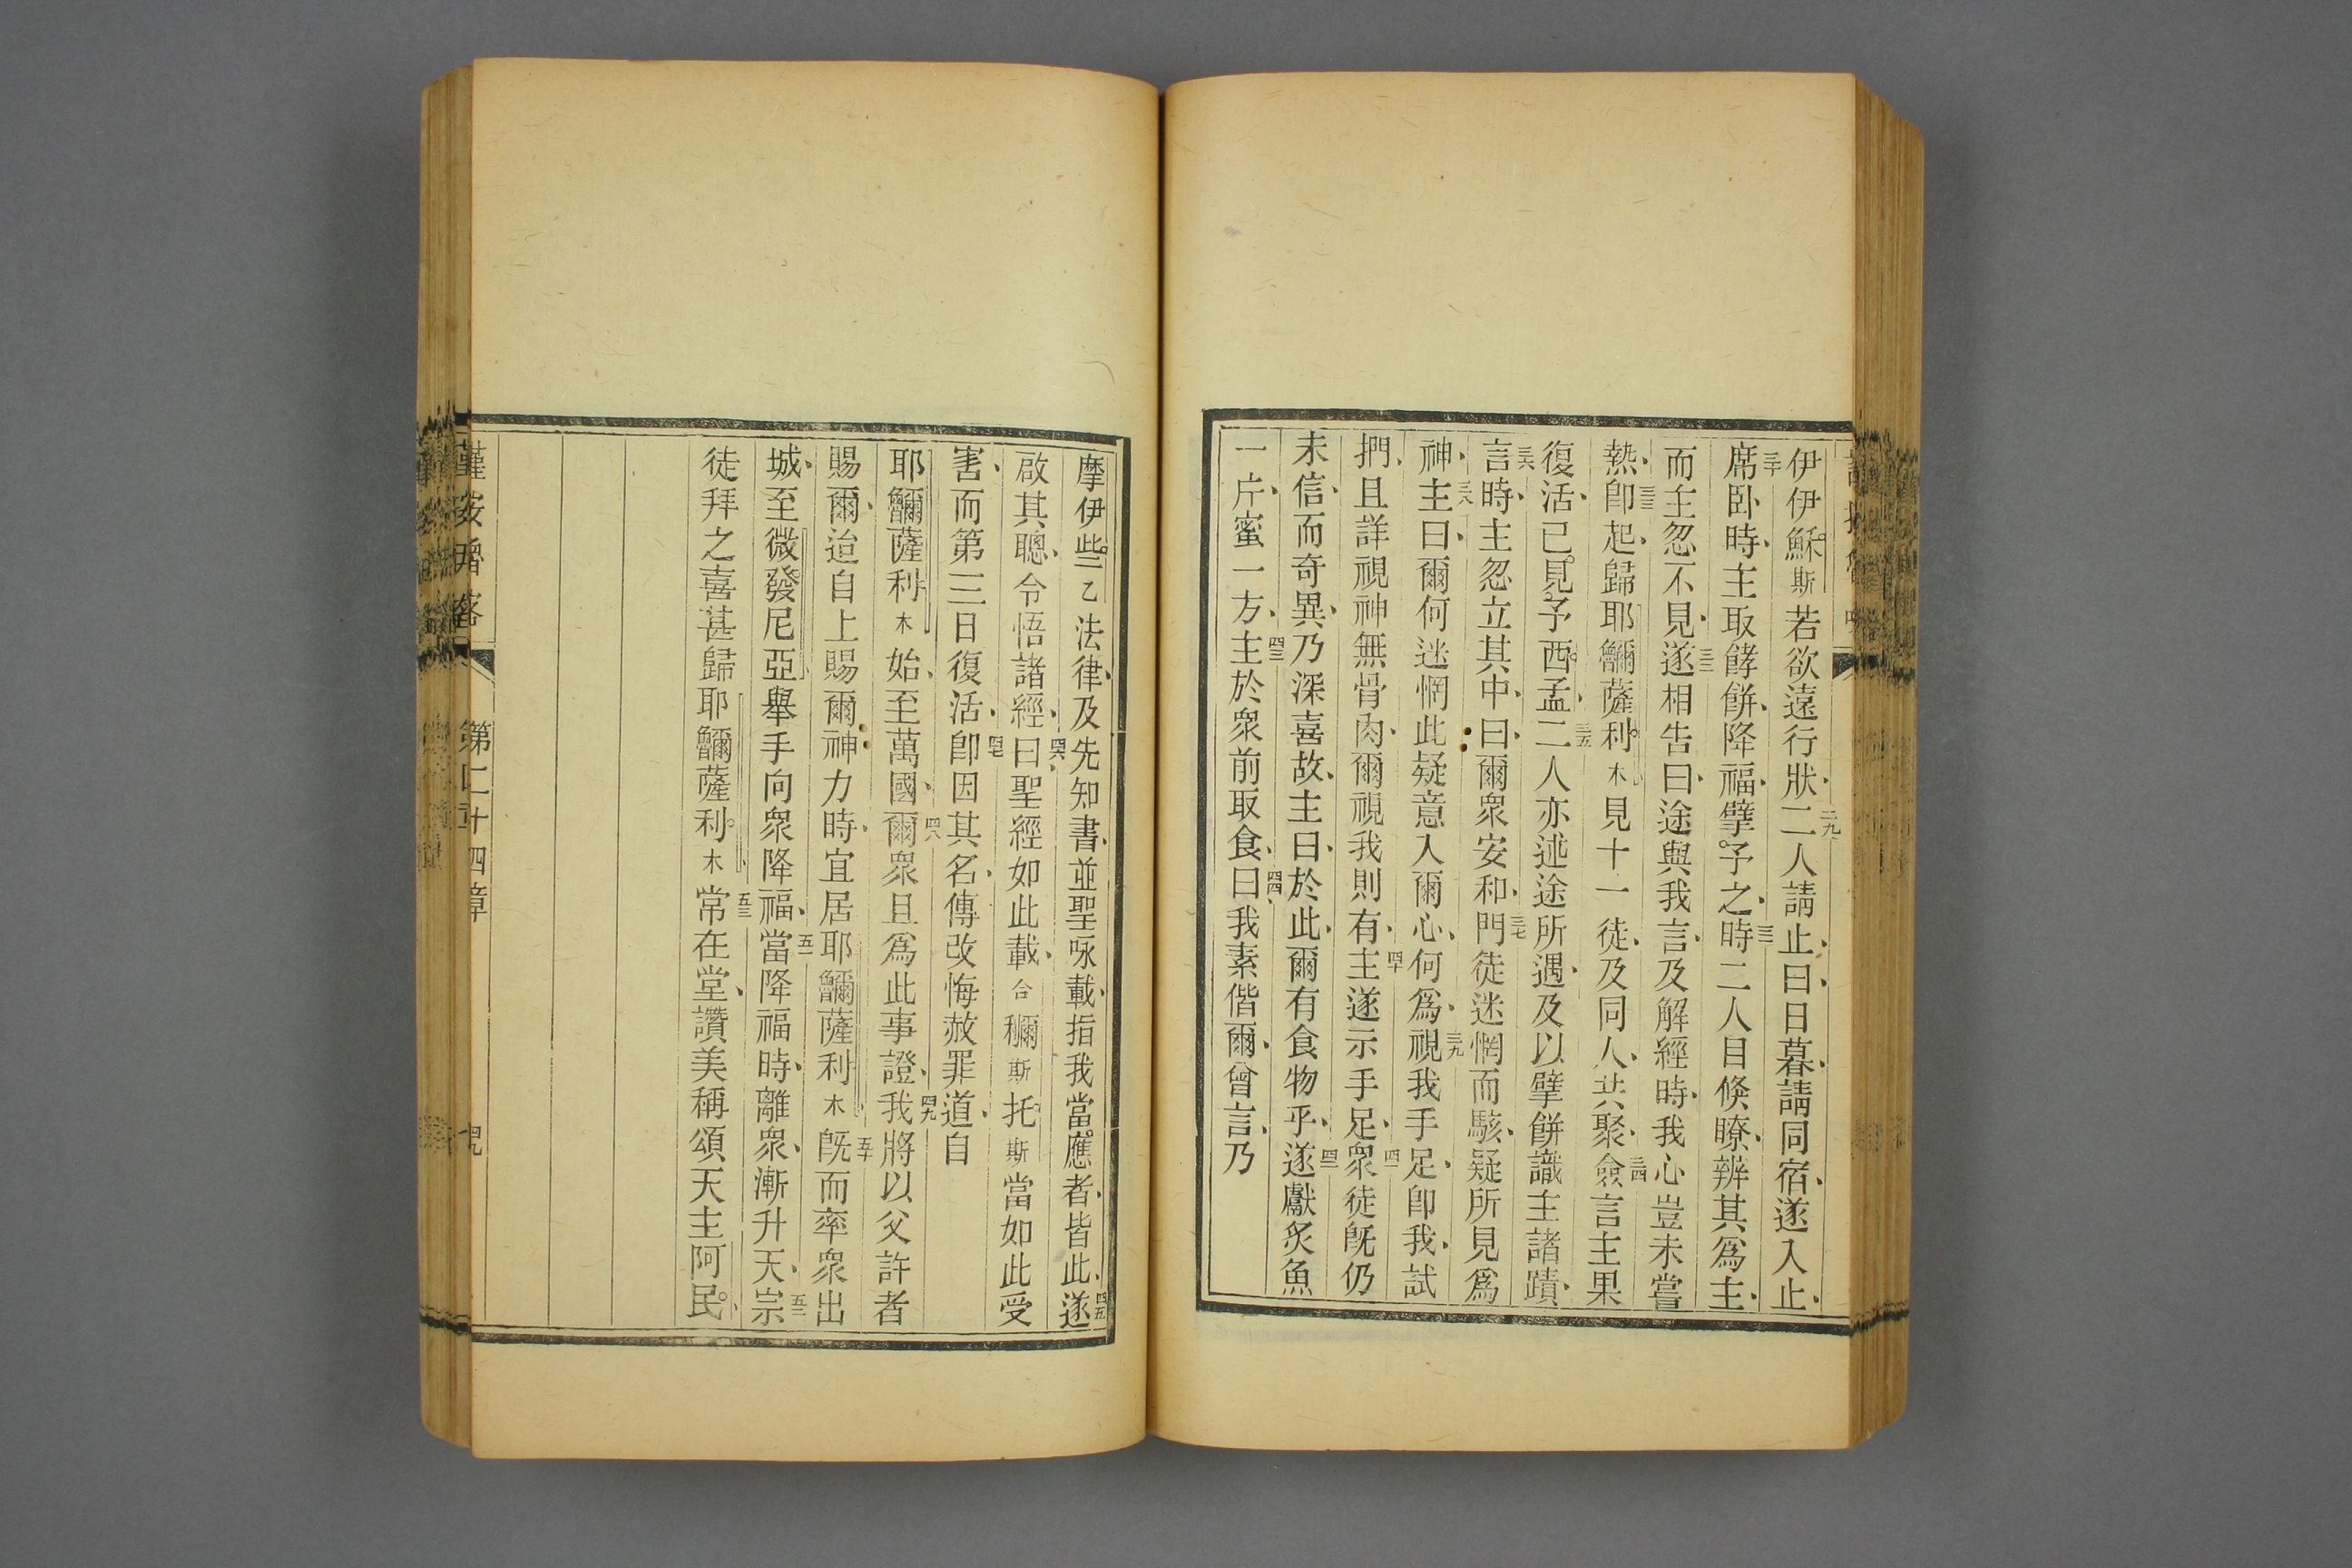 伊伊穌斯若欲遠行狀、二九二人請止、曰、日暮、請同宿、遂入止、
三十席卧時、主取餑餅、降福、擘予之、三一時二人目倏瞭、辨其爲主、
而主忽不見、三二遂相告曰、途與我言、及解經時、我心豈未嘗
熱、三三卽起、歸耶𨠭薩利木見十一徒、及同人、共聚、三四僉言主果
復活已、見予西孟、三五二人亦述途所遇、及以擘餅識主諸蹟、
三六言時、主忽立其中、曰、爾衆安和、三七門徒迷惘而駭、疑所見爲
神、三八主曰、爾何迷惘此疑意入爾心、何爲、三九視我手足、卽我、試
捫、且詳視神無骨肉、爾視我則有、四十主遂示手足、四一衆徒旣仍
未信、而奇異、乃深喜故、主曰、於此、爾有食物乎、四二遂獻炙魚
一片、蜜一方、四三主於衆前取食、四四曰、我素偕爾、曾言、乃
摩伊些乙法律、及先知書、並聖咏載、指我當應者、皆此、四五遂
啟其聰、令悟諸經、四六曰、聖經如此載、合穪斯托斯當如此受
害、而第三日復活、四七卽因其名、傳改悔赦罪道、自
耶𨠭薩利木始、至萬國、四八爾衆且爲此事證、四九我將以父許者
賜爾、迨自上賜爾神力時、宜居耶𨠭薩利木五十旣而率衆出
城、至微發尼亞、舉手向衆降福、五一當降福時、離衆、漸升天、五二宗
徒拜之喜甚歸耶𨠭薩利木五三常在堂、讚美稱頌天主阿民、
第二十四章
四九